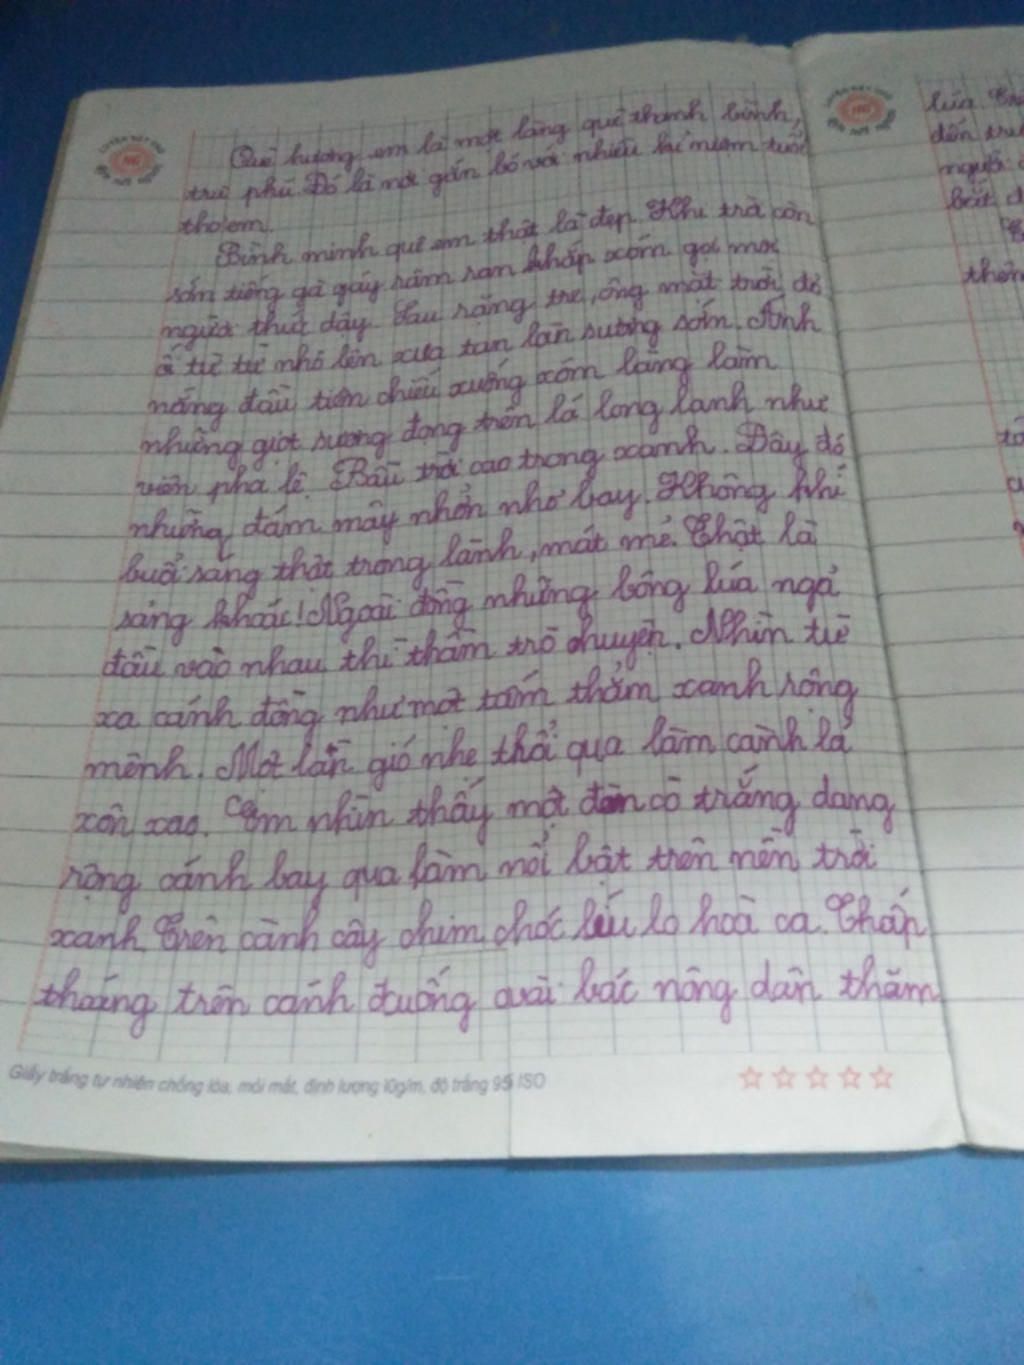 Quê hương em là một làng quê thanh bình,
trù phú. Đó là nơi gắn bó với nhiều kỉ niệm tuổi
thơ em.
Bình minh quê em thật là đẹp. Khi trời còn
sớm tiếng gà gáy râm ran khắp xóm gọi mọi
người thức dậy. Sau rặng tre, ông mặt trời đỏ
ối từ từ nhô lên xua tan làn sương sớm. Ánh
nắng đầu tiên chiếu xuống xóm làng làm
những giọt sương đọng trên lá long lanh như
viên pha lê. Bầu trời cao trong xanh. Đây đó
những đám mây nhởn nhơ bay. Không khí
buổi sáng thật trong lành, mát mẻ. Thật là
sảng khoái! Ngoài đồng những bông lúa ngả
đầu vào nhau thì thầm trò chuyện. Nhìn từ
xa cánh đồng như một tấm thảm xanh rộng
mênh. Một làn gió nhẹ thổi qua làm cành lá
xôn xao. Em nhìn thấy một đàn cò trắng dang
rộng cánh bay qua làm nổi bật trên nền trời
xanh Trên cành cây chim chóc líu lo hoà ca. Thấp
thoáng trên cánh đường vài bác nông dân thăm
Giấy trắng tự nhiên chống lóa, mỏi mắt, định lượng 10g/m, độ trắng 95 ISO
lúa.
thôn